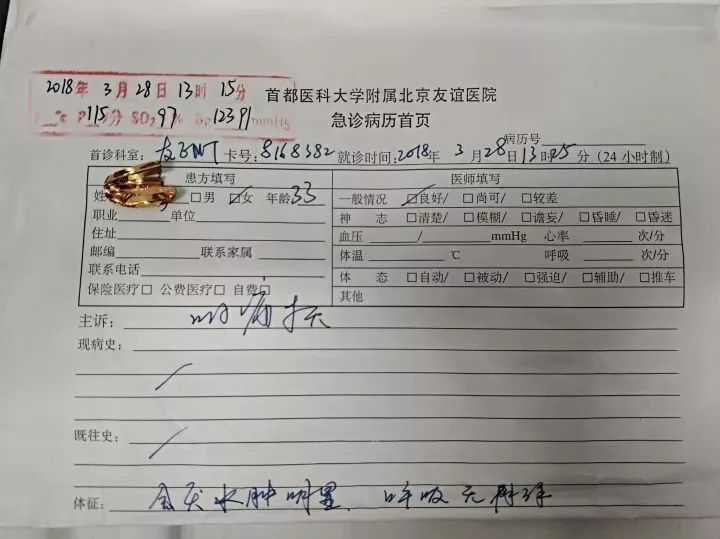 2018年3月28日13时15分
P115/分 SO₂97% Bp 123 91 mmHg
首都医科大学附属北京友谊医院
急诊病历首页
病历号
首诊科室: 卡号:8168382 就诊时间:2018年3月28日13时25分(24小时制)
患方填写
姓 □男 ☑女 年龄33
职业 单位
住址
邮编 联系家属
联系电话
保险医疗□ 公费医疗□ 自费□
医师填写
一般情况 ☑良好/ □尚可/ □较差
神志 □清楚/ □模糊/ □谵妄/ □昏睡/ □昏迷
血压 / mmHg 心率 次/分
体温 ℃ 呼吸 次/分
体态 □自动/ □被动/ □强迫/ □辅助/ □推车
其他
主诉: 咽痛1天
现病史: /
既往史: /
体征: 会厌水肿明显. 呼吸无